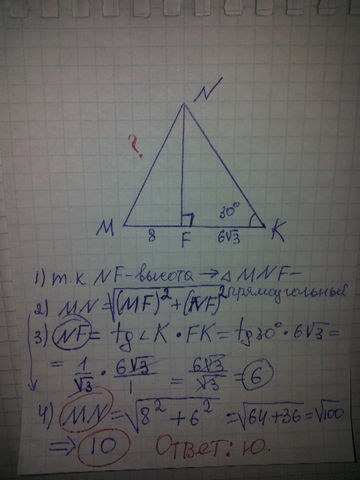 N
?
30°
M 8 F 6√3 K
1) т.к NF-высота → △ MNF-
прямоугольный
2) MN=√(MF)²+(NF)²
3) NF = tg∠K · FK = tg30° · 6√3 =
= 1/√3 · 6√3/1 = 6√3/√3 = 6
4) MN = √8²+6² = √64+36 = √100
⇒ 10 Ответ: 10.